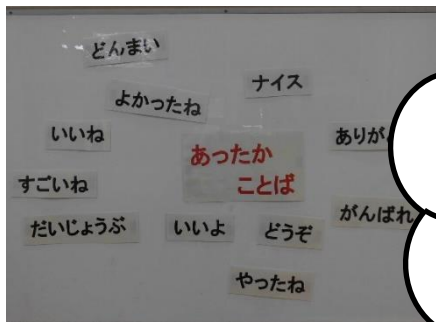 どんまい
ナイス
よかったね
いいね
ありが
あったか
ことば
すごいね
がんばれ
だいじょうぶ
いいよ
どうぞ
やったね